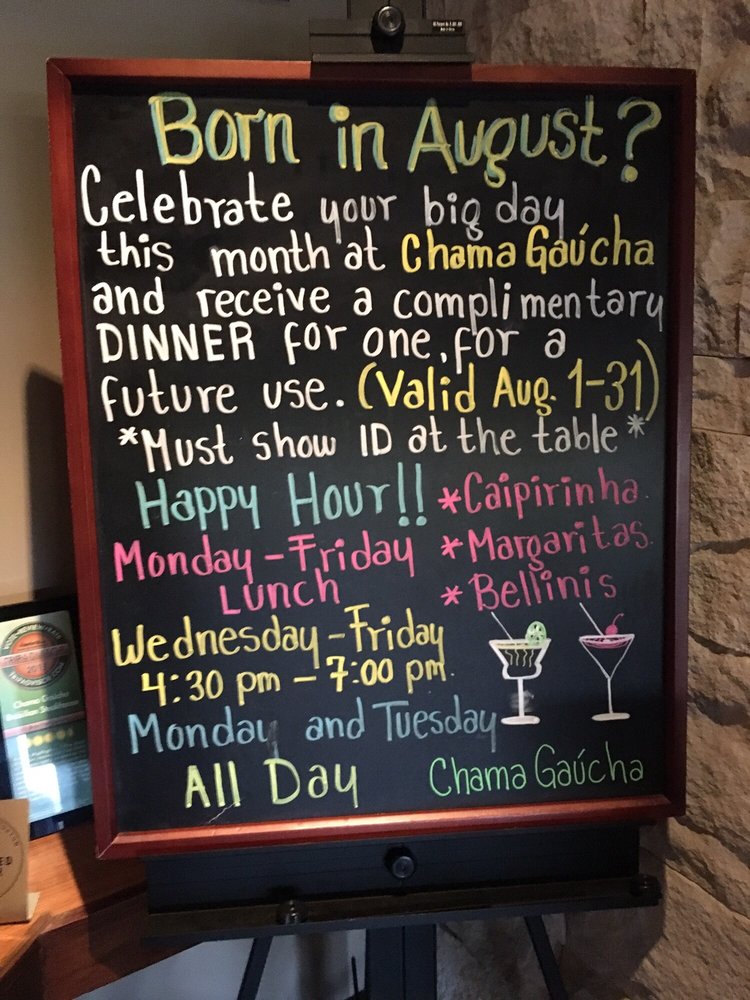 Born in August?
Celebrate your big day
this month at Chama Gaúcha
and receive a complimentary
DINNER for one, for a
future use. (Valid Aug. 1-31)
*Must show ID at the table*
Happy Hour!!
Monday-Friday
LUNCH
Wednesday-Friday
4:30 pm - 7:00 pm.
Monday and Tuesday
All Day
*Caipirinha.
*Margaritas.
*Bellinis
Chama Gaúcha
Chama Gaucha
Brazilian Steakhouse